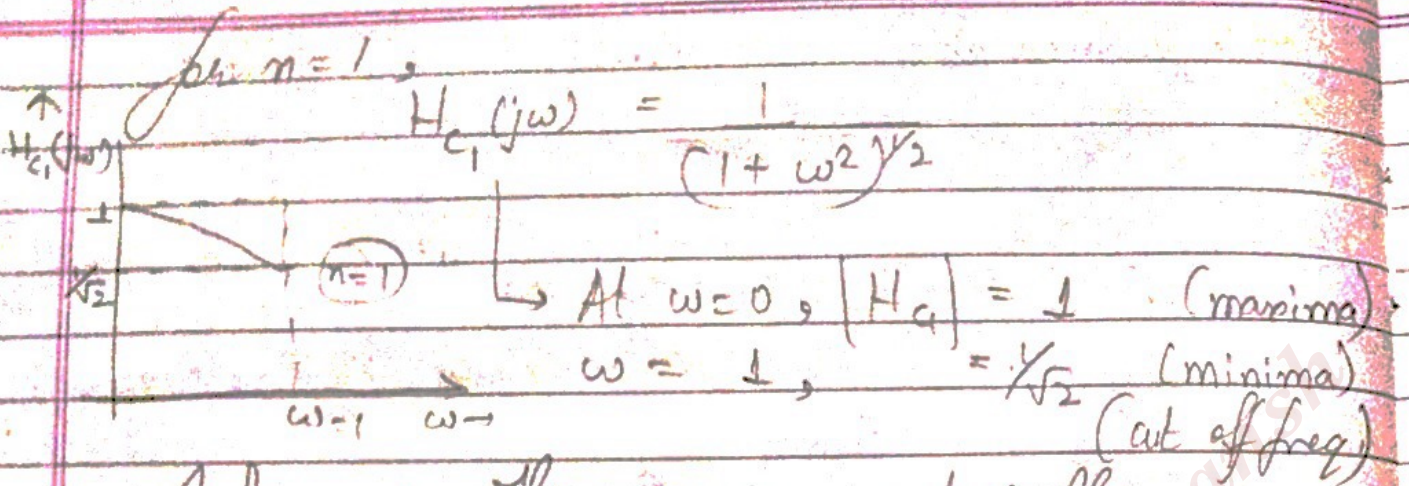 for n = 1,
H_{c_1}(jω) = 1 / (1 + ω²)^{1/2}
↑
H_{c_1}(jω)
1
1/√2
n=1
ω=1 ω→
→ At ω = 0, |H_{c_1}| = 1 (maxima)
ω = 1, = 1/√2 (minima)
(cut off freq)